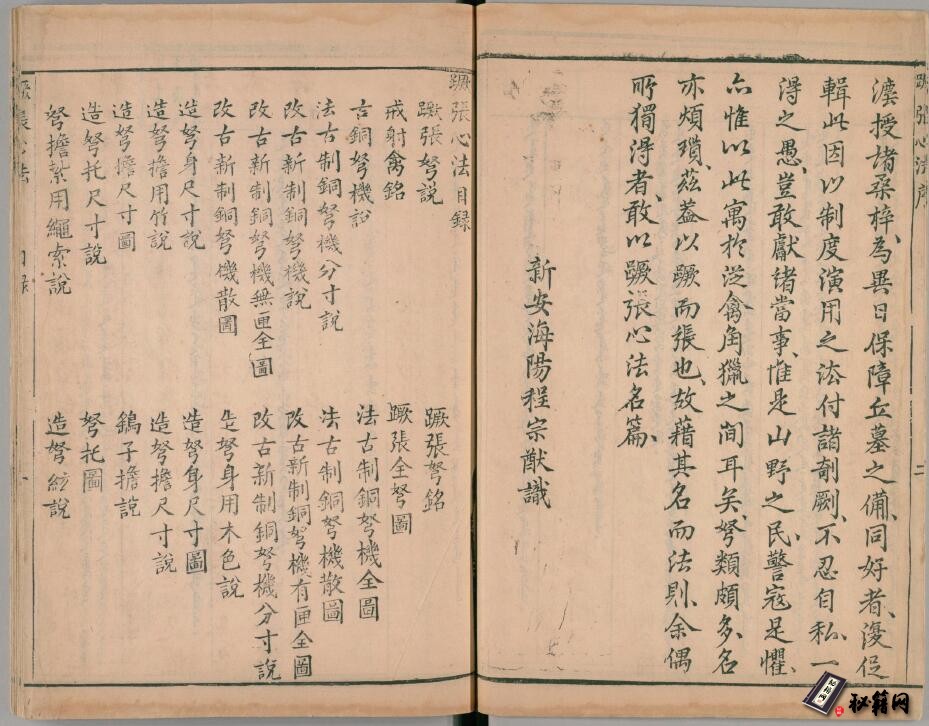 蹶張心法序
二
濅授諸桑梓、為異日保障丘墓之備、同好者、復促
輯此因以制度演用之法付諸剞劂、不忍自私、一
得之愚、豈敢獻諸當事、惟是山野之民、警寇是懼、
亦惟以此寓於從禽角獵之間耳矣、弩類頗多、名
亦煩瑣、茲蓋以蹶而張也、故藉其名而法則、余偶
所獨得者、敢以蹶張心法名篇、
新安海陽程宗猷識
蹶張心法目録
蹶張弩說
蹶張弩銘
戒射禽銘
蹶張全弩圖
古銅弩機說
法古制銅弩機全圖
法古制銅弩機分寸說
法古制銅弩機散圖
改古新制銅弩機說
改古新制銅弩機有匣全圖
改古新制銅弩機無匣全圖
改古新制銅弩機分寸說
改古新制銅弩機散圖
造弩身用木色說
造弩身尺寸說
造弩身尺寸圖
造弩擔用竹說
造弩擔尺寸說
造弩擔尺寸圖
鷂子擔說
造弩托尺寸說
弩托圖
弩擔紮用繩索說
造弩絃說
蹶張心法
目録
一
秘籍网